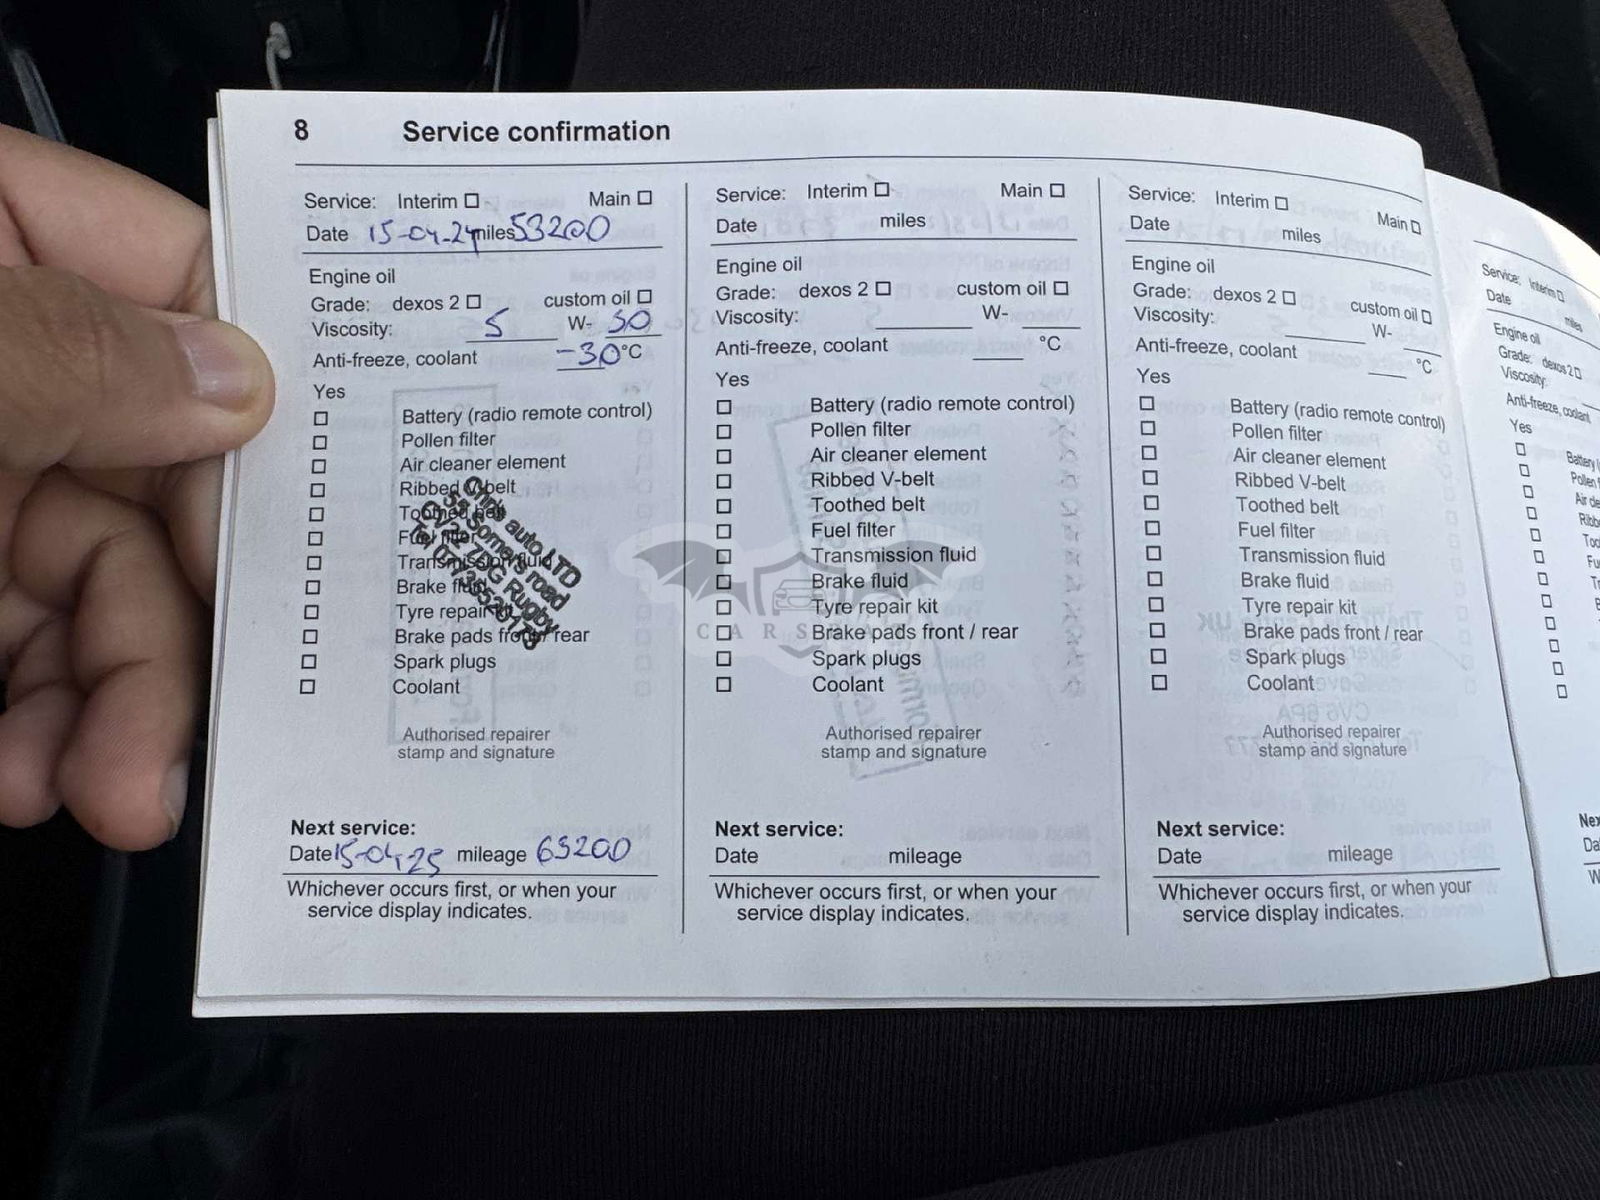 8 Service confirmation
Service: Interim ☐ Main ☐
Date 15-04-24 miles 53200
Engine oil
Grade: dexos 2 ☐ custom oil ☐
Viscosity: 5 W- 30
Anti-freeze, coolant -30 °C
Yes
☐ Battery (radio remote control)
☐ Pollen filter
☐ Air cleaner element
☐ Ribbed V-belt
☐ Toothed belt
☐ Fuel filter
☐ Transmission fluid
☐ Brake fluid
☐ Tyre repair kit
☐ Brake pads front / rear
☐ Spark plugs
☐ Coolant
Chris auto LTD
Somers road
Rugby
Authorised repairer
stamp and signature
Next service:
Date 15-04-25 mileage 63200
Whichever occurs first, or when your
service display indicates.
Service: Interim ☐ Main ☐
Date miles
Engine oil
Grade: dexos 2 ☐ custom oil ☐
Viscosity: W-
Anti-freeze, coolant °C
Yes
☐ Battery (radio remote control)
☐ Pollen filter
☐ Air cleaner element
☐ Ribbed V-belt
☐ Toothed belt
☐ Fuel filter
☐ Transmission fluid
☐ Brake fluid
☐ Tyre repair kit
☐ Brake pads front / rear
☐ Spark plugs
☐ Coolant
Authorised repairer
stamp and signature
Next service:
Date mileage
Whichever occurs first, or when your
service display indicates.
Service: Interim ☐ Main ☐
Date miles
Engine oil
Grade: dexos 2 ☐ custom oil ☐
Viscosity: W-
Anti-freeze, coolant °C
Yes
☐ Battery (radio remote control)
☐ Pollen filter
☐ Air cleaner element
☐ Ribbed V-belt
☐ Toothed belt
☐ Fuel filter
☐ Transmission fluid
☐ Brake fluid
☐ Tyre repair kit
☐ Brake pads front / rear
☐ Spark plugs
☐ Coolant
Authorised repairer
stamp and signature
Next service:
Date mileage
Whichever occurs first, or when your
service display indicates.
Service: Interim ☐
Date miles
Engine oil
Grade: dexos 2 ☐
Viscosity:
Anti-freeze, coolant
Yes
☐ Battery
☐ Pollen